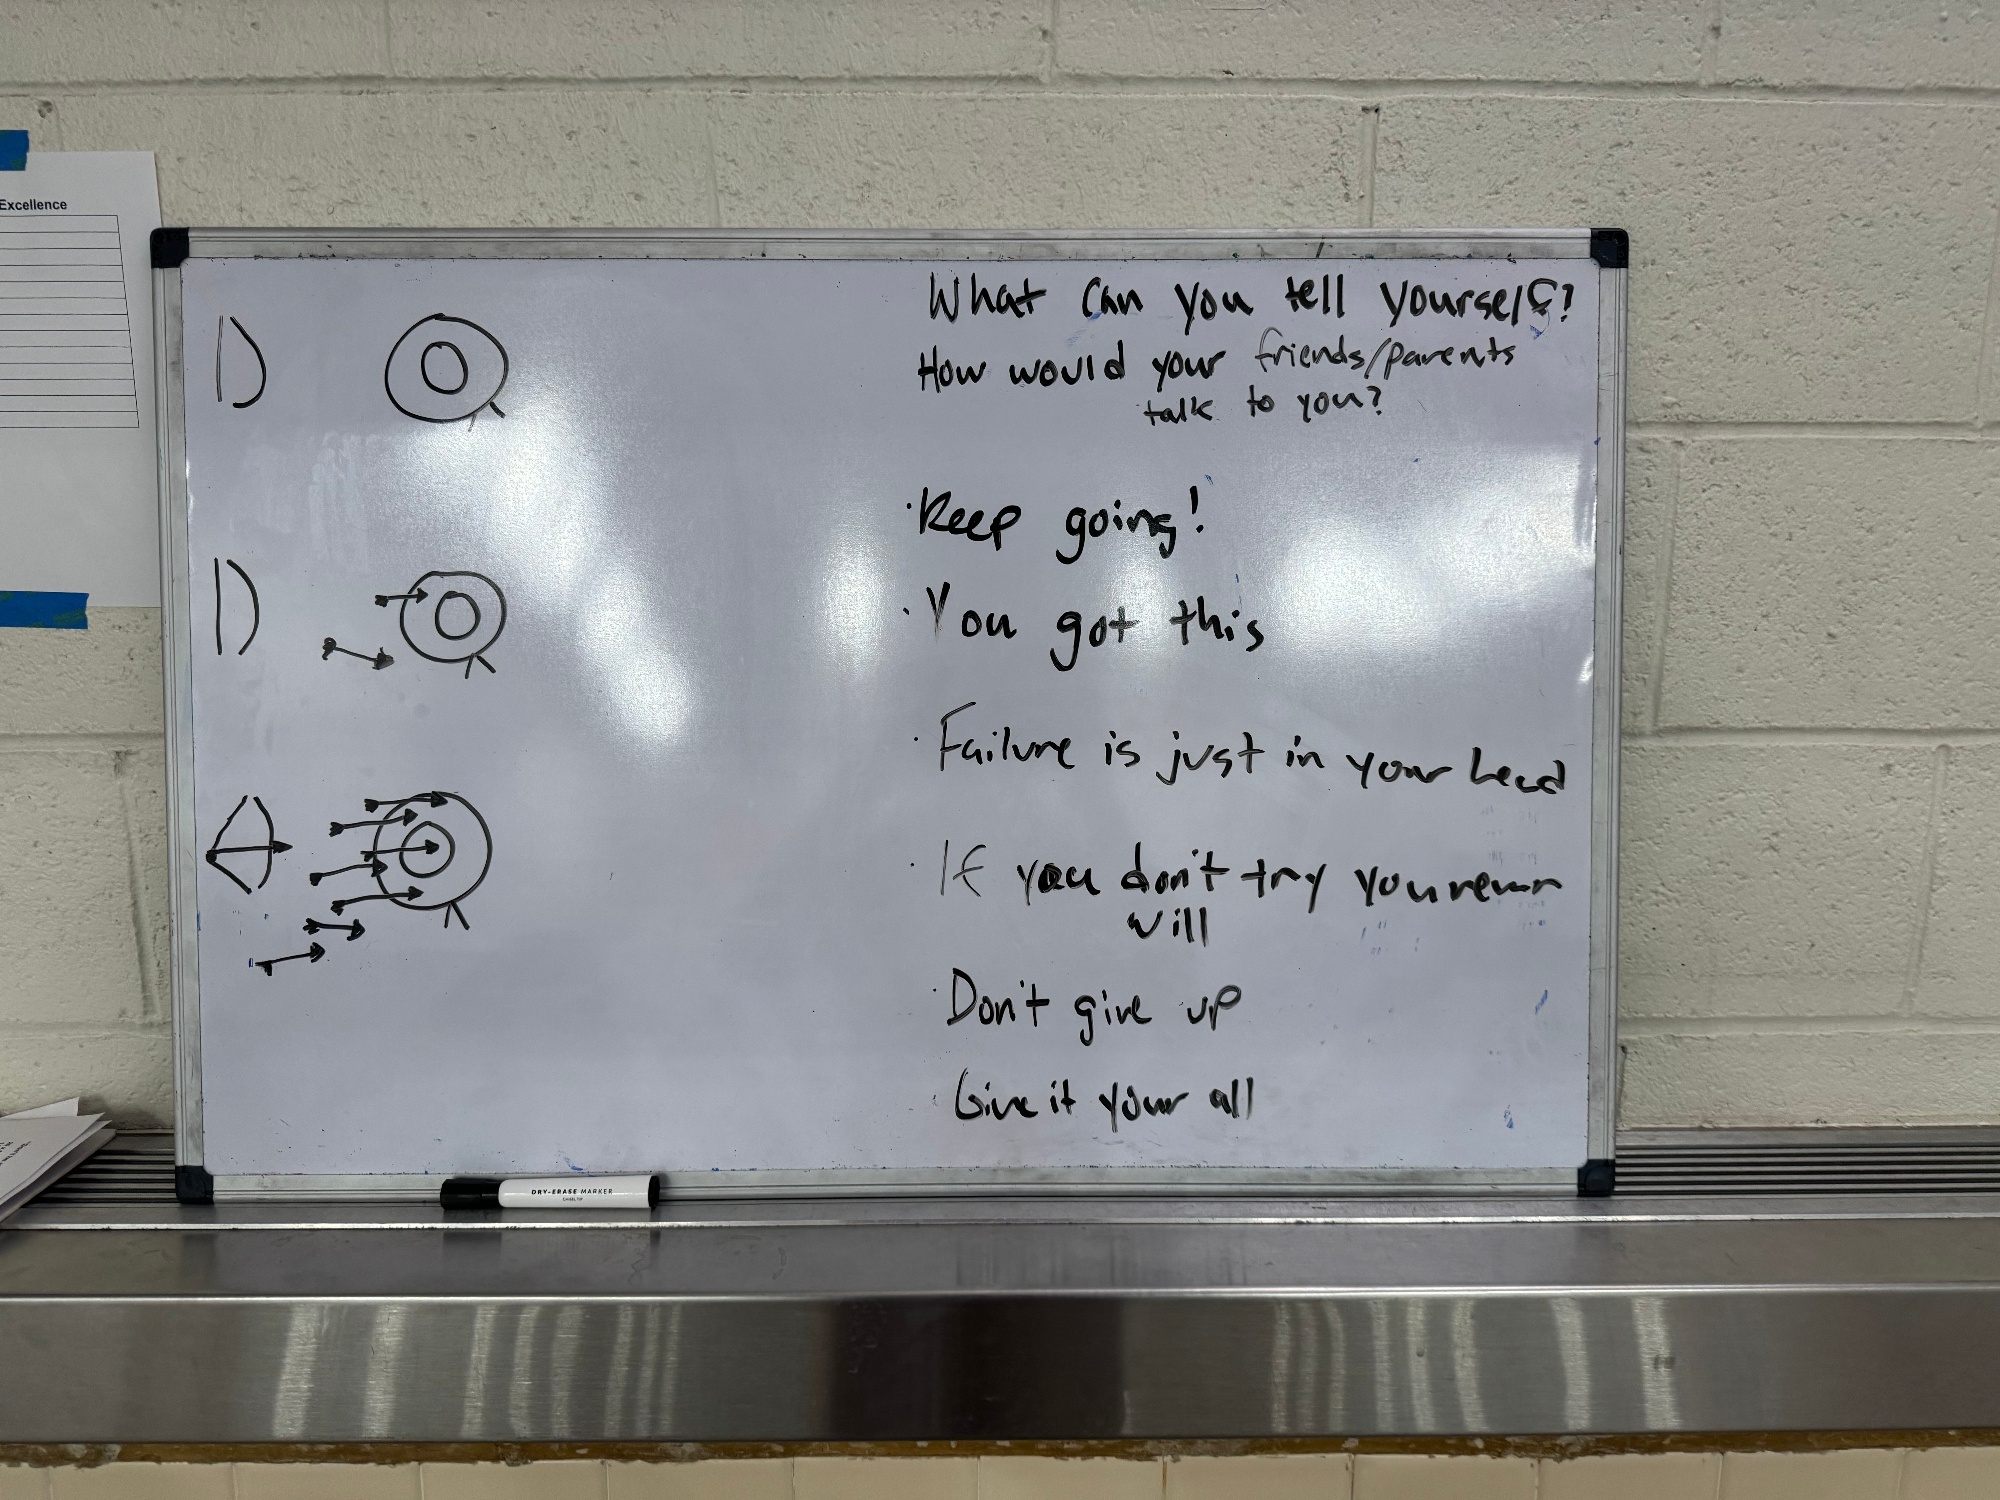 Excellence
What can you tell yourself?
How would your friends/parents
talk to you?
· Keep going!
· You got this
· Failure is just in your head
· If you don't try you never
will
· Don't give up
· Give it your all
DRY-ERASE MARKER
CHISEL TIP